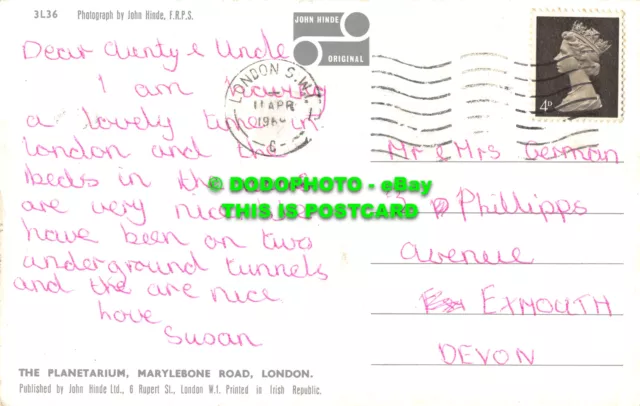 3L36 Photograph by John Hinde, F.R.P.S.
JOHN HINDE
ORIGINAL
LONDON S.W.
11 APR
196
-6-
4D
Dear Aunty & Uncle
I am having
a lovely time in
london and the
beds in the
are very nice we
have been on two
underground tunnels
and the are nice
love
Susan
Mr & Mrs German
Phillipps
avenue
EXMOUTH
DEVON
© DODOPHOTO - eBay
THIS IS POSTCARD
THE PLANETARIUM, MARYLEBONE ROAD, LONDON.
Published by John Hinde Ltd., 6 Rupert St., London W.1. Printed in Irish Republic.